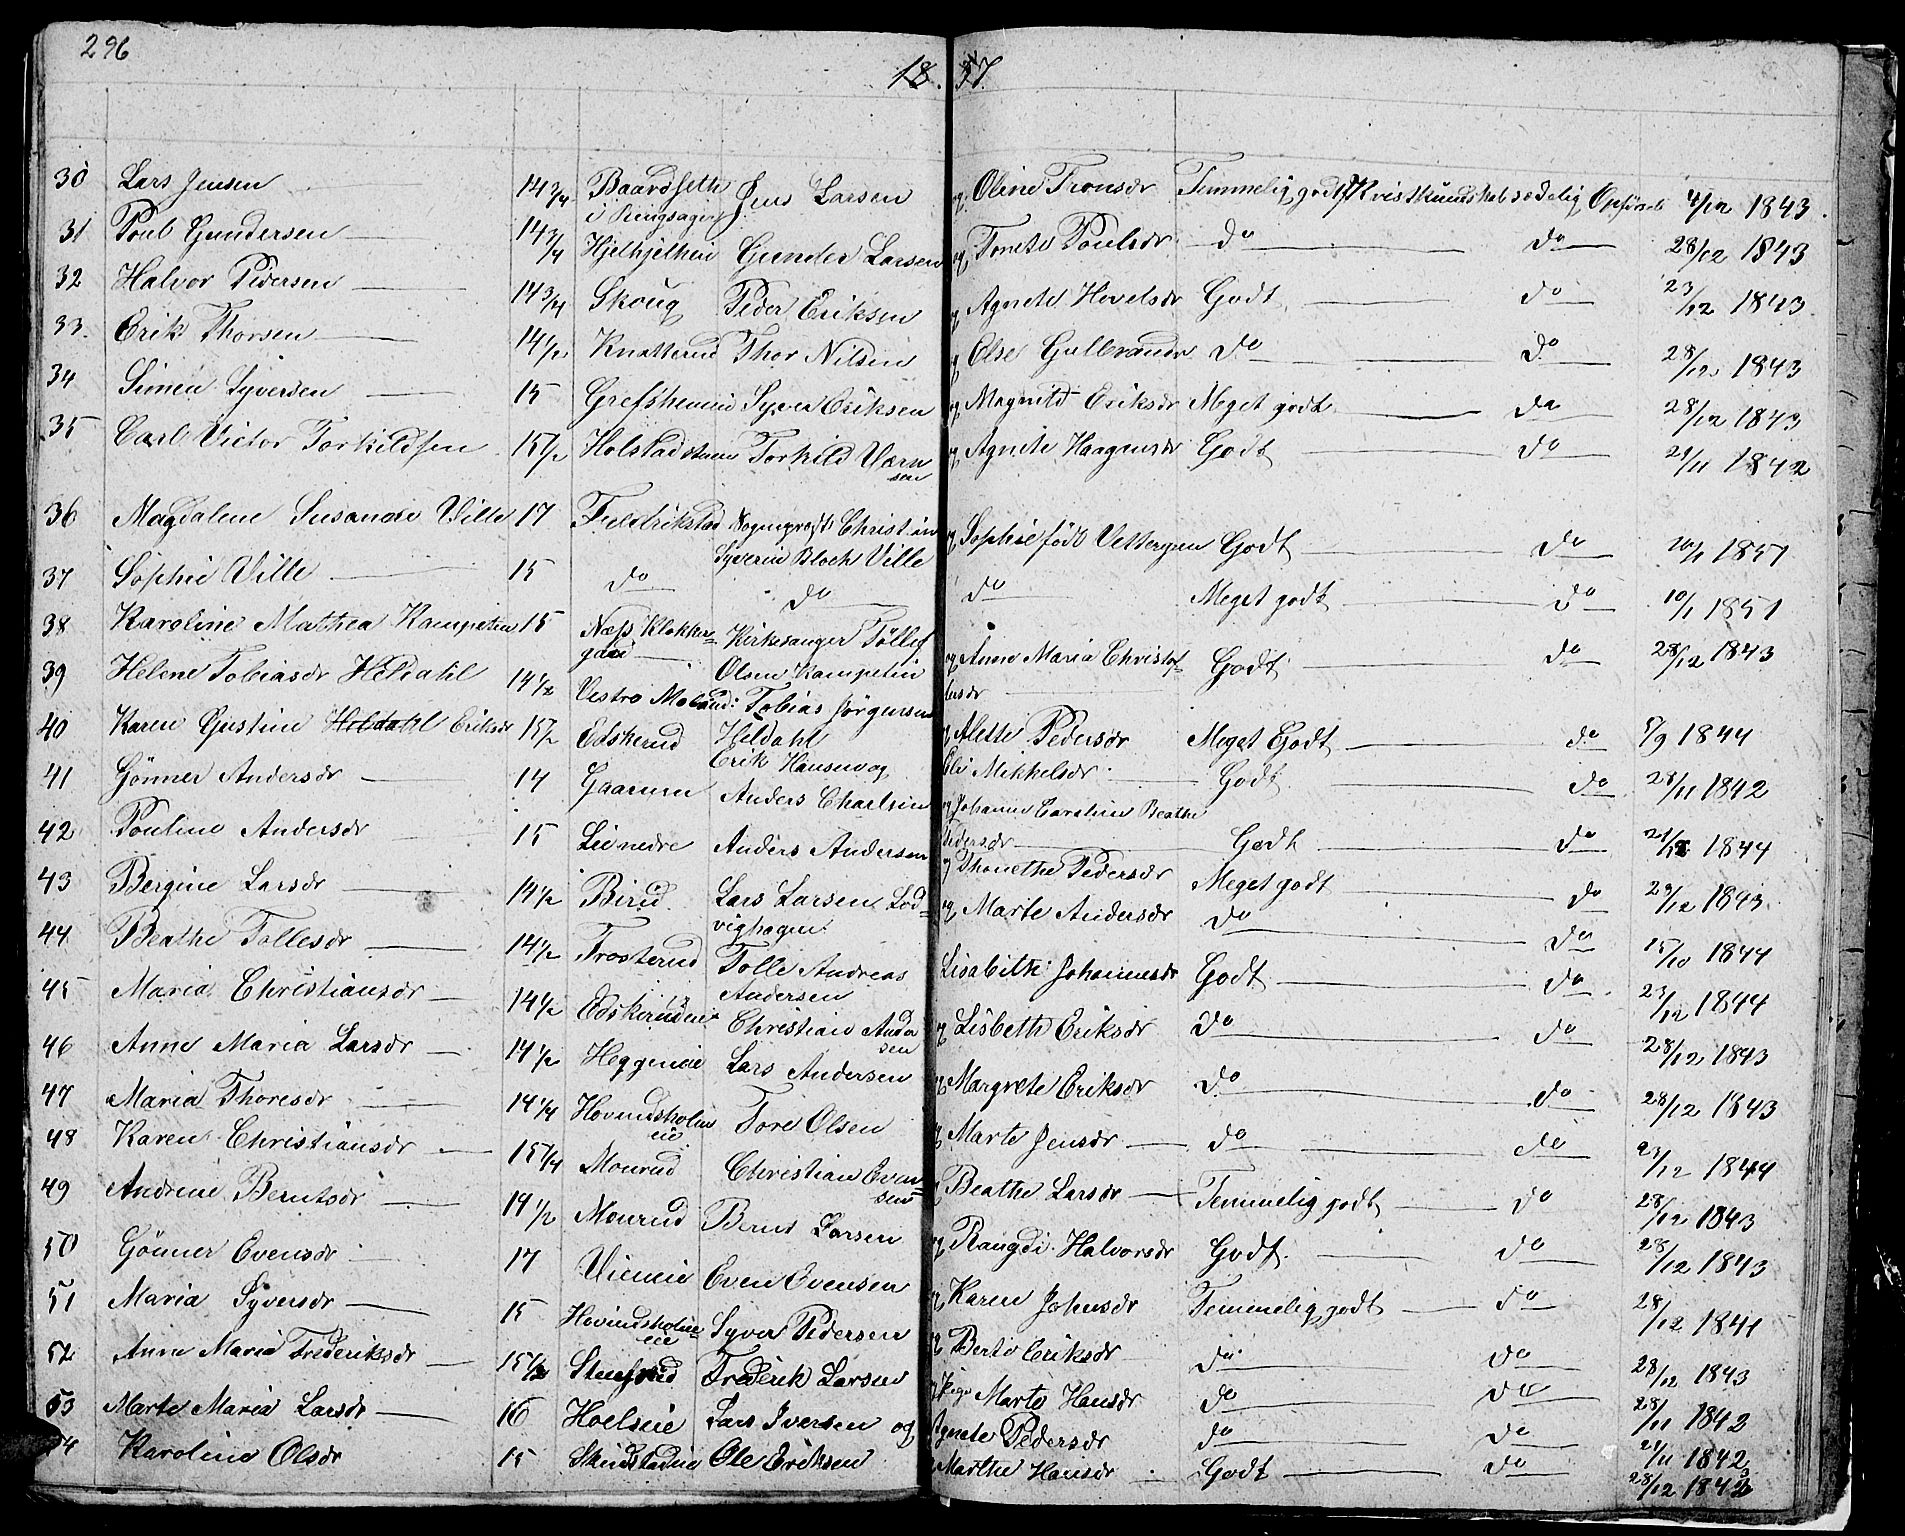 296
18.57.
30 Lars Jensen 14 3/4 Baardseth i Ringsager Jens Larsen og Oline Tronsdr Temmelig godt Kristkundskab sedelig Opførsel 4/12 1843.
31 Poul Gundersen 14 3/4 Hjelhjelheie Gunder Larsen og Tonete Poulsdr do do 28/12 1843
32 Halvor Pedersen 14 3/4 Skoug Peder Eriksen og Agnete Hovelsdr Godt do 23/12 1843.
33. Erik Thorsen 14 1/2 Knatterud Thor Nilsen og Else Gulbrandsdr do do 28/12 1843
34 Simen Syversen 15 Grefsheimeie Syver Eriksen og Magnild Eriksdr Meget godt do 28/12 1843
35 Carl Victor Torkildsen 15 1/2 Holstad TorkildVærn sen og Agnete Haagensdr Godt do 29/11 1842
36 Magdalene Susanne Ville 17 Fredrikstad Christian Syverin Bloch Ville og Sophie født Vettergren Godt do 10/1 1851
37 Sophie Ville 15 do do do Meget godt do 10/1 1851
38 Karoline Mathea Kampetin 15 Næss Klokker= gaard Kirkesanger Tøllef Olsen Kampetin og Anne Maria Christof= fersdr Godt do 28/12 1843
39 Helene Tobiasdr Heldahl 14 1/2 Vestre Mælund: Tobias Jørgensen Heldahl og Alette Pedersdr Meget Godt do 8/9 1844
40 Karen Gustine Heldahl Eriksdr 15 1/2 Edskerud Erik Hansen og Eli Mikkelsdr Godt do 28/11 1842
41 Gønner Andersdr 14 Gaarum Anders Charlsen og Johanne Caroline Beathe Pedersdr Godt do 21/12 1844
42 Pouline Andersdr 15 Lienedre Anders Andersen og Thonethe Pedersdr Meget godt do 29/12 1843
43 Bergine Larsdr 14 1/2 Birid Lars Larsen Lod= vighagen og Marte Andersdr do do 15/10 1844
44 Beathe Tollesdr 14 1/2 Trosterud Tolle Andreas Andersen Lisabith Johannesdr Godt do 23/12 1844
45 Maria Christiansdr 14 1/2 Edskerudeie Christian Ander sen og Lisbeth Eriksdr do do 28/12 1843
46 Anne Maria Larsdr 14 1/2 Heggeneie Lars Andersen og Margrete Eriksdr do do 28/12 1843
47 Maria Thoresdr 14 1/4 Hovindsholm eie Tore Olsen og Marte Jensdr do do 23/12 1844
48 Karen Christiansdr 15 1/4 Monrud Christian Even= sen og Beathe Larsdr Temmelig godt do 28/12 1843
49 Andrine Berntsdr 14 1/2 Monrud Bernt Larsen og Rangdi Halvorsdr Godt do 28/12 1843
50 Gønner Evensdr 17 Vieneie Even Evensen og Karen Johnsdr Temmelig godt do 28/12 1841
51 Maria Syversdr 15 Hovindsholm= eie Syver Pedersen og Berte Eriksdr do do 28/12 1843
52 Anne Maria Frederiksdr 15 1/2 Stensrud Frederik Larsen og Pige Marte Hansdr do do 28/11 1842
53 Marte Maria Larsdr 16 Hoelseie Lars Iversen og Agnete Pedersdr do do 21/11 1842
54 Karoline Olsdr 15 Skindstadeie Ole Eriksen Marthe Hansdr Godt do 28/12 1843